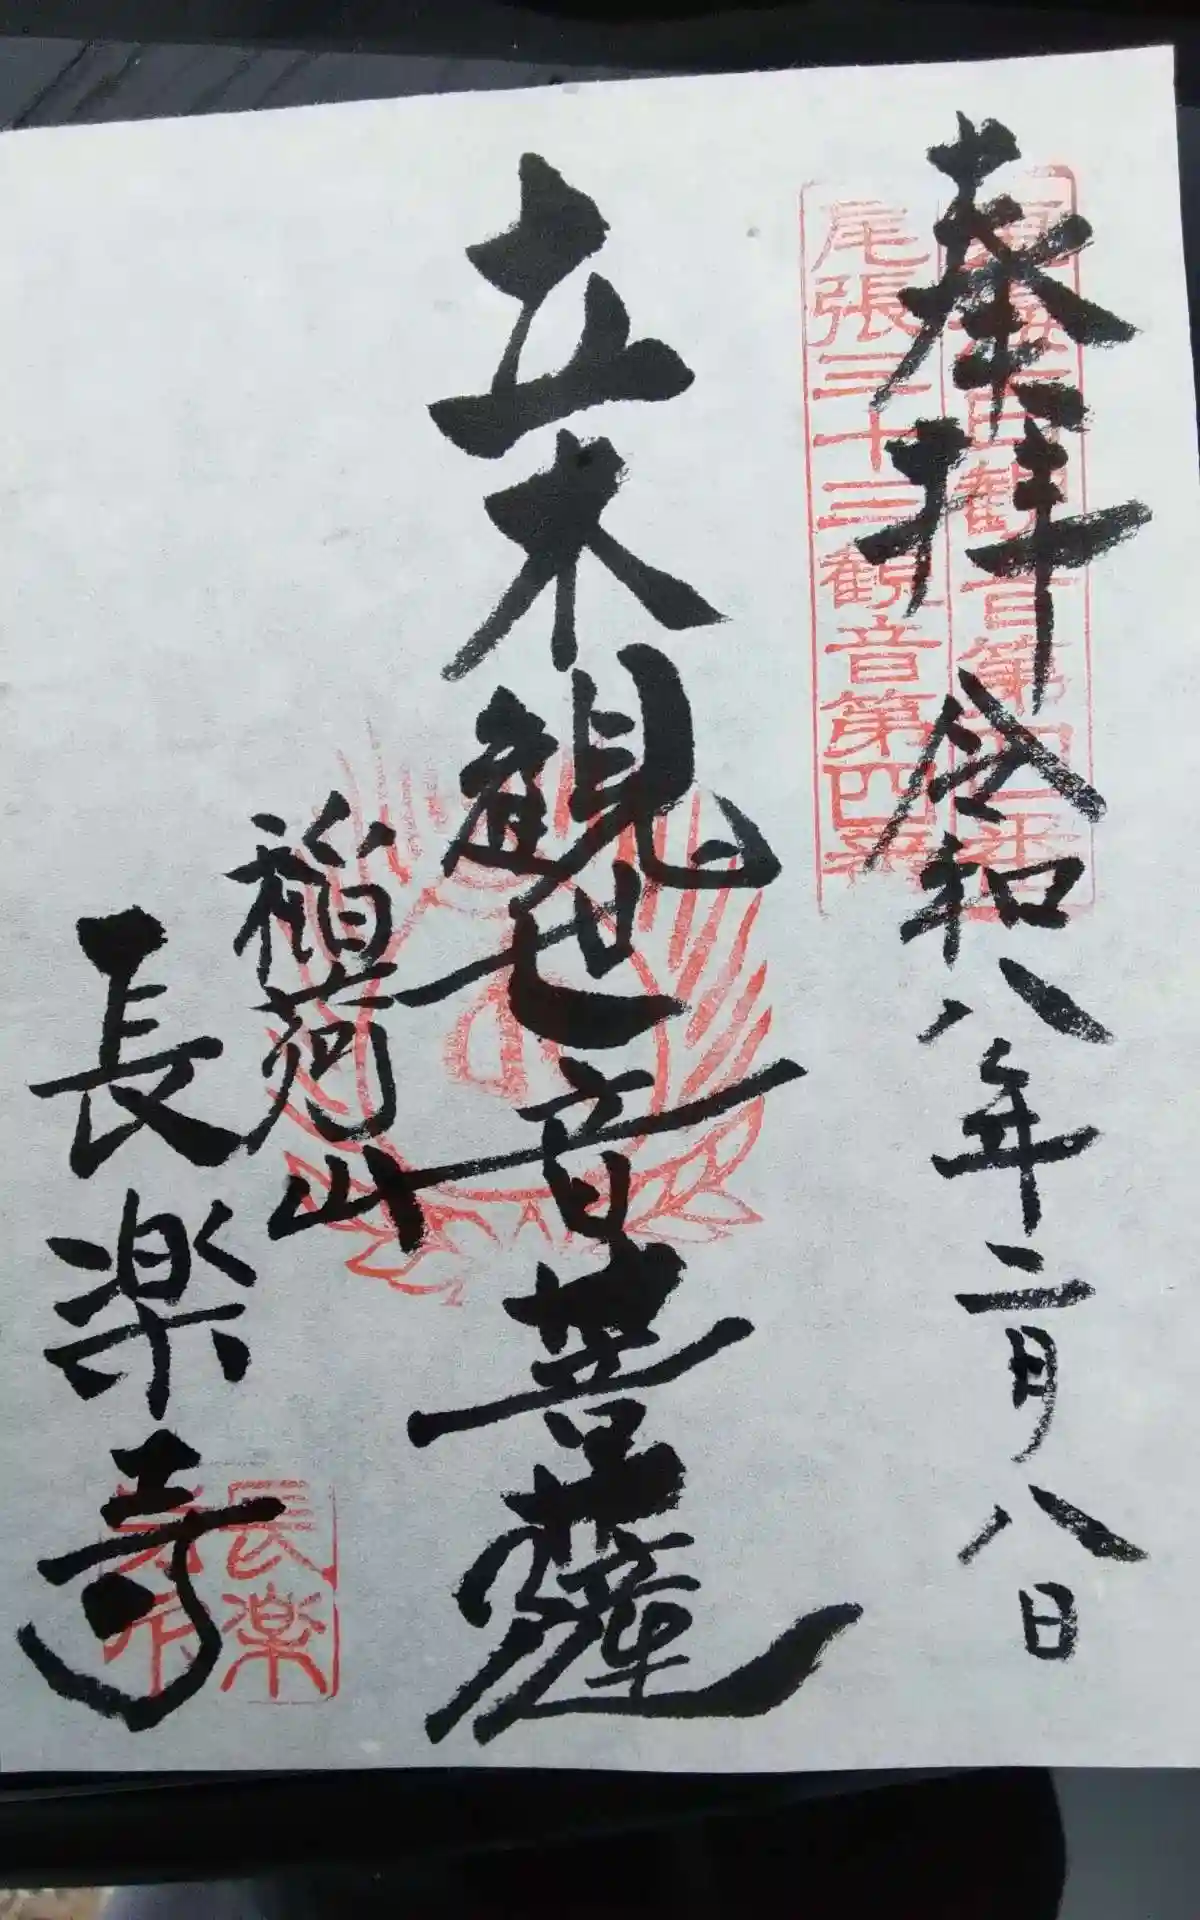 奉拝 令和八年二月八日
尾張三十三観音第四番
立木観世音菩薩
稲荷山
長楽寺
長楽